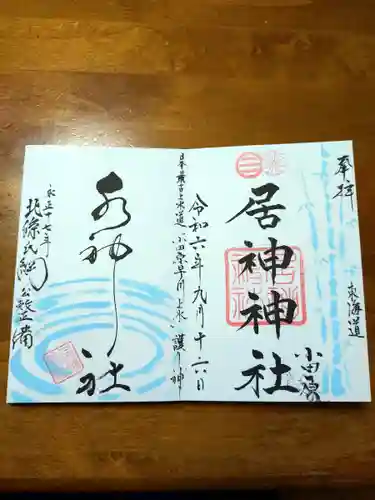 奉拝
東海道
小田原
居神神社
令和六年九月十六日
日本最古上水道 小田原早川上水 護り神
水神社
永正十七年
北條氏綱公殿正備